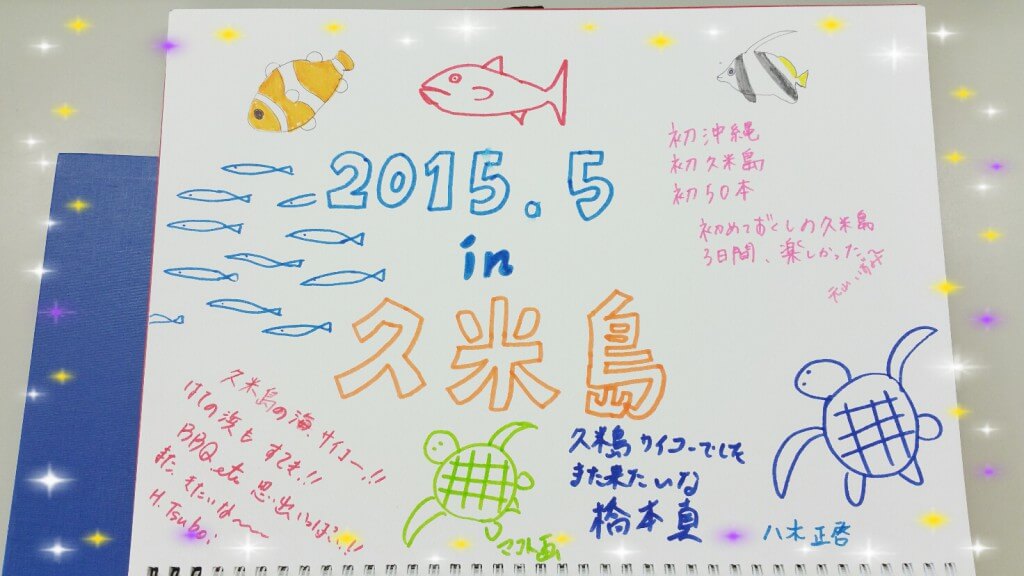 2015.5
in
久米島
初沖縄
初久米島
初50本
初めてづくしの久米島
3日間、楽しかった〜
久米島の海、サイコー!!
はての浜も すてき!!
BBQ.etc 思い出いっぱい!!
また、きたいな〜
H.Tsuboi
久米島サイコーでした
また来たいな
橋本真
マコト画
八木正啓